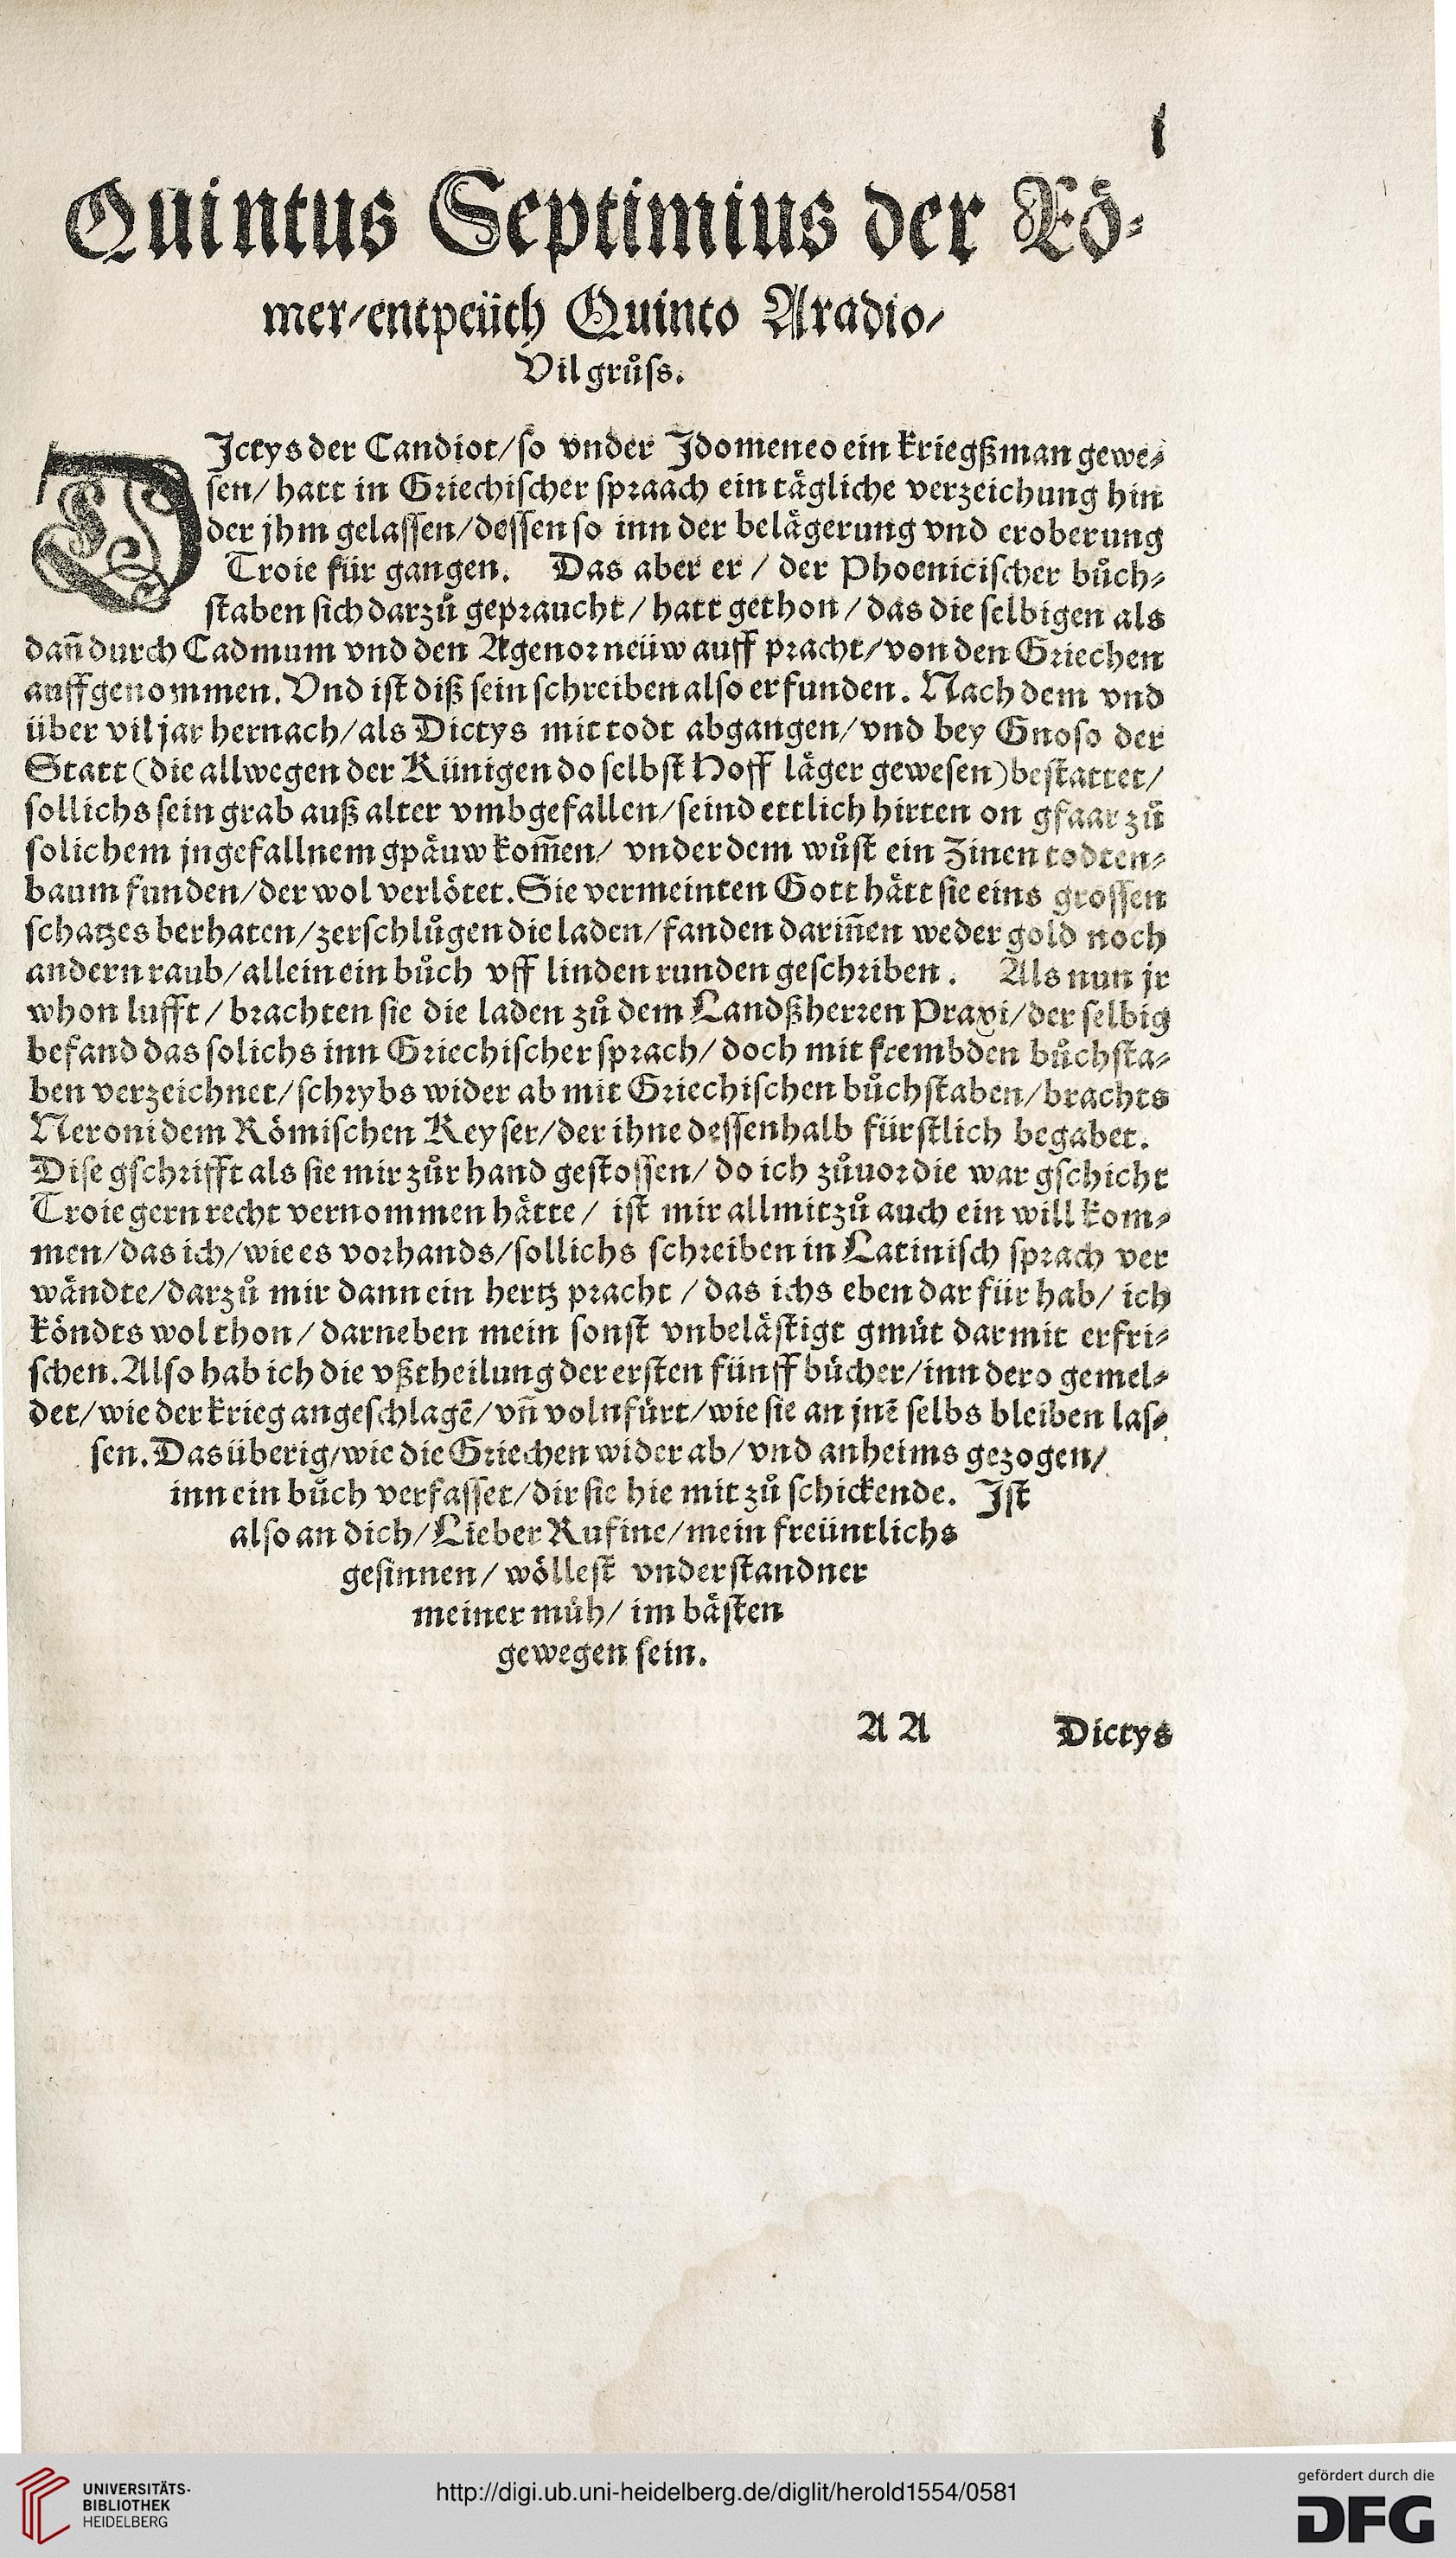 j
Quintus Septimius der Rö-
mer/entpeüth Quinto Aradio/
Vil grůſs.
DJctys der Candiot/ſo vnder Jdomeneo ein kriegßman gewe-
ſen/ hatt in Griechiſcher ſpraach ein tägliche verzeichung hin
der jhm gelaſſen/deſſen ſo inn der belägerung vnd eroberung
Troie für gangen. Das aber er / der Phoeniciſcher bůch-
ſtaben ſich darzů gepraucht/ hatt gethon / das die ſelbigen als
dañ durch Cadmum vnd den Agenor neüw auff pracht/von den Griechen
auffgenommen. Vnd iſt diß ſein ſchreiben alſo erfunden. Nach dem vnd
über vil jar hernach/als Dictys mit todt abgangen/vnd bey Gnoſo der
Statt (die allwegen der Künigen do ſelbſt Hoff läger geweſen) beſtattet/
ſollichs ſein grab auß alter vmbgefallen/ſeind ettlich hirten on gfaar zů
ſolichem jngefallnem gpäuw kom̃en/ vnder dem wůſt ein Zinen todten-
baum funden/der wol verlötet. Sie vermeinten Gott hätt ſie eins groſſen
ſchatzes berhaten/zerſchlůgen die laden/fanden dariñen weder gold noch
andern raub/allein ein bůch vff linden runden geſchriben. Als nun jr
whon lufft / brachten ſie die laden zů dem Landßherren Praxi/der ſelbig
befand das ſolichs inn Griechiſcher ſprach/ doch mit frembden bůchſta-
ben verzeichnet/ſchrybs wider ab mit Griechiſchen bůchſtaben/brachts
Neroni dem Römiſchen Keyſer/der ihne deſſenhalb fürſtlich begabet.
Diſe gſchrifft als ſie mir zůr hand geſtoſſen/ do ich zůuor die war gſchicht
Troie gern recht vernommen hätte/ iſt mir allmitzů auch ein will kom-
men/das ich/wie es vorhands/ſollichs ſchreiben in Latiniſch ſprach ver
wändte/darzů mir dann ein hertz pracht / das ichs eben dar für hab/ ich
köndts wol thon/ darneben mein ſonſt vnbeläſtigt gmüt darmit erfri-
ſchen. Alſo hab ich die vßtheilung der erſten fünff bücher/inn dero gemel-
det/wie der krieg angeſchlagẽ/vñ volnfürt/wie ſie an jnẽ ſelbs bleiben laſ-
ſen. Das überig/wie die Griechen wider ab/vnd anheims gezogen/
inn ein bůch verfaſſet/dir ſie hie mit zů ſchickende. Jſt
alſo an dich/Lieber Rufine/mein freüntlichs
geſinnen/ wölleſt vnderſtandner
meiner müh/ im bäſten
gewegen ſein.
A A Dictys
UNIVERSITÄTS-
BIBLIOTHEK
HEIDELBERG
http://digi.ub.uni-heidelberg.de/diglit/herold1554/0581
gefördert durch die
DFG